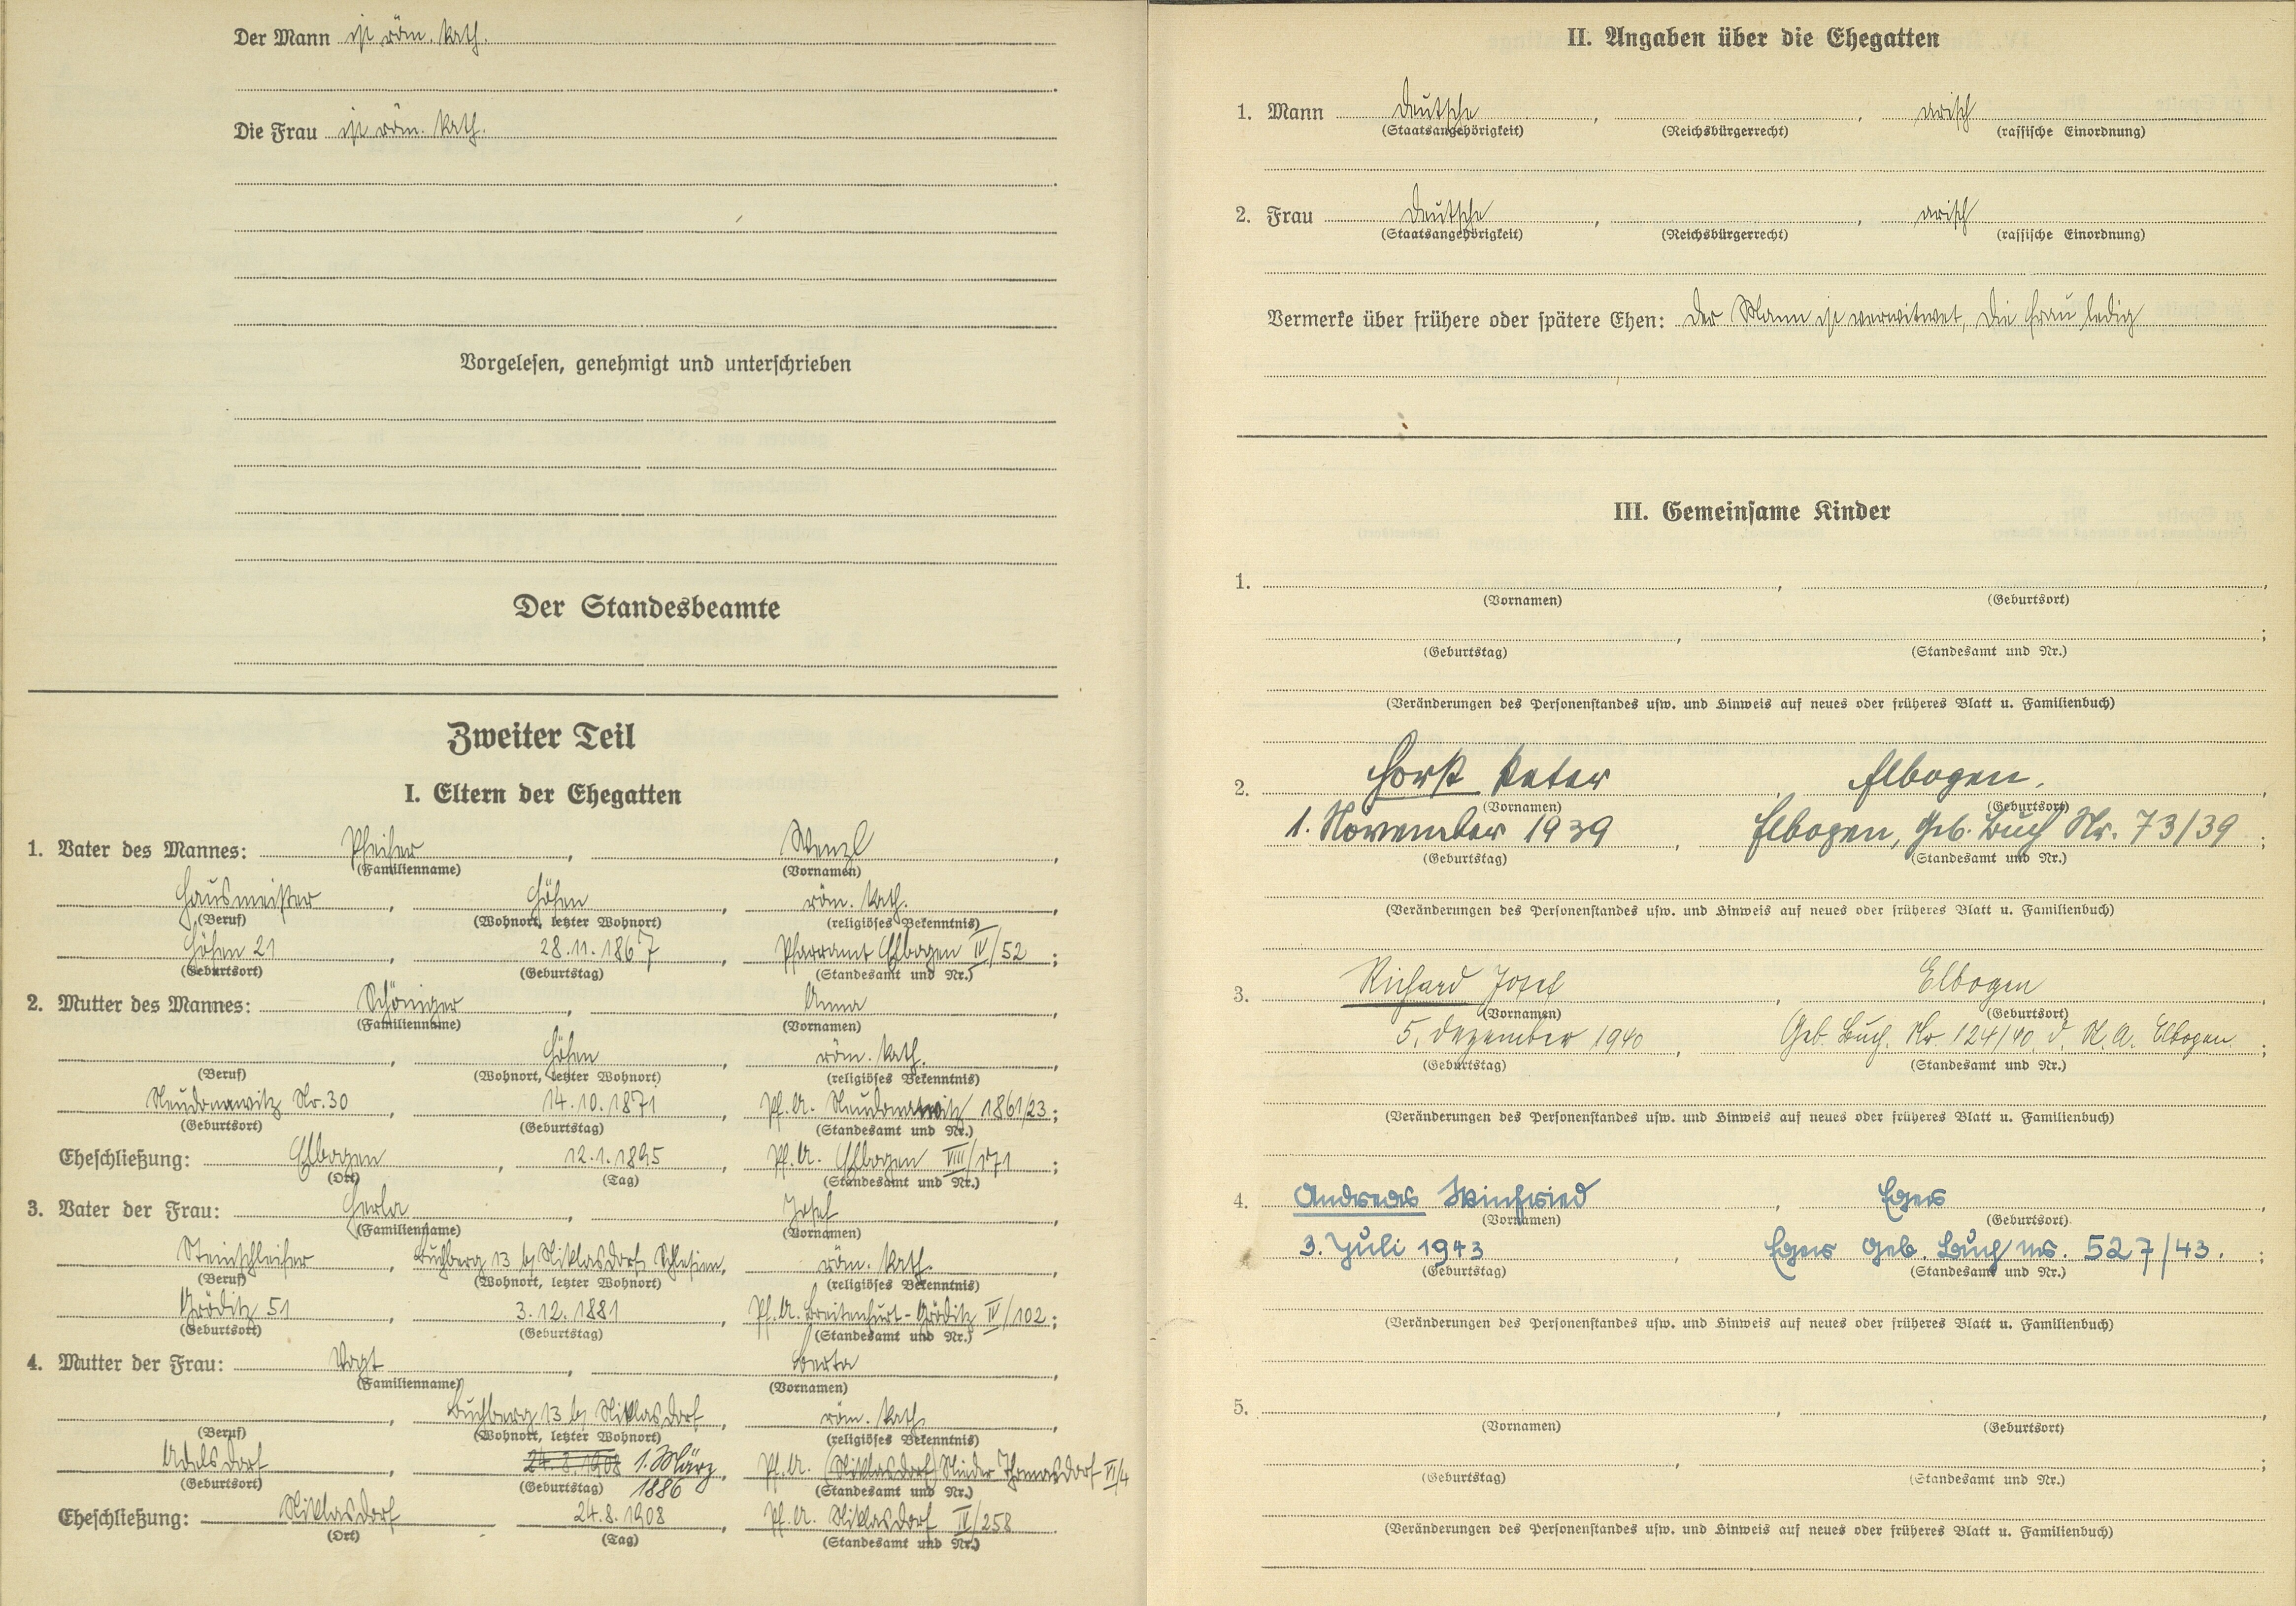 Der Mann ist röm. kath.
Die Frau ist röm. kath.
Vorgelesen, genehmigt und unterschrieben
Der Standesbeamte
Zweiter Teil
I. Eltern der Ehegatten
1. Vater des Mannes: Pfeifer, Wenzl,
(Familienname) (Vornamen)
Hausmeister, Höfen, röm. kath.,
(Beruf) (Wohnort, letzter Wohnort) (religiöses Bekenntnis)
Höfen 21, 28.11.1867, Pfarramt Elbogen IV/52;
(Geburtsort) (Geburtstag) (Standesamt und Nr.)
2. Mutter des Mannes: Schöniger, Anna,
(Familienname) (Vornamen)
, Höfen, röm. kath.,
(Beruf) (Wohnort, letzter Wohnort) (religiöses Bekenntnis)
Neudonawitz Nr. 30, 14.10.1871, Pf. A. Neudonawitz 1861/23;
(Geburtsort) (Geburtstag) (Standesamt und Nr.)
Eheschließung: Elbogen, 12.1.1895, Pf. A. Elbogen VIII/171;
(Ort) (Tag) (Standesamt und Nr.)
3. Vater der Frau: Gerla, Josef,
(Familienname) (Vornamen)
Steinschleifer, Buchberg 13 b/ Niklasdorf, Schlesien, röm. kath.,
(Beruf) (Wohnort, letzter Wohnort) (religiöses Bekenntnis)
Gröditz 51, 3.12.1881, Pf. A. Breitenfurt-Gröditz IV/102;
(Geburtsort) (Geburtstag) (Standesamt und Nr.)
4. Mutter der Frau: Vogt, Berta,
(Familienname) (Vornamen)
, Buchberg 13 b/ Niklasdorf, röm. kath.,
(Beruf) (Wohnort, letzter Wohnort) (religiöses Bekenntnis)
Adelsdorf, 24.8.1908 1. März, Pf. A. (Niklasdorf) Nieder Thomasdorf VI/4
(Geburtsort) (Geburtstag) 1886 (Standesamt und Nr.)
Eheschließung: Niklasdorf 24.8.1908, Pf. A. Niklasdorf IV/258
(Ort) (Tag) (Standesamt und Nr.)
II. Angaben über die Ehegatten
1. Mann Deutsche, , arisch
(Staatsangehörigkeit) (Reichsbürgerrecht) (rassische Einordnung)
2. Frau Deutsche, , arisch
(Staatsangehörigkeit) (Reichsbürgerrecht) (rassische Einordnung)
Vermerke über frühere oder spätere Ehen: Der Mann ist verwitwet, die Frau ledig
III. Gemeinsame Kinder
1. , ,
(Vornamen) (Geburtsort)
, ;
(Geburtstag) (Standesamt und Nr.)
(Veränderungen des Personenstandes usw. und Hinweis auf neues oder früheres Blatt u. Familienbuch)
2. Horst Peter, Elbogen,
(Vornamen) (Geburtsort)
1. November 1939, Elbogen, Geb. Buch Nr. 73/39;
(Geburtstag) (Standesamt und Nr.)
(Veränderungen des Personenstandes usw. und Hinweis auf neues oder früheres Blatt u. Familienbuch)
3. Richard Josef, Elbogen,
(Vornamen) (Geburtsort)
5. Dezember 1940, Geb. Buch. Nr. 124/40 d. St. A. Elbogen;
(Geburtstag) (Standesamt und Nr.)
(Veränderungen des Personenstandes usw. und Hinweis auf neues oder früheres Blatt u. Familienbuch)
4. Andreas Winfried, Eger,
(Vornamen) (Geburtsort)
3. Juli 1943, Eger Geb. Buch nr. 527/43.;
(Geburtstag) (Standesamt und Nr.)
(Veränderungen des Personenstandes usw. und Hinweis auf neues oder früheres Blatt u. Familienbuch)
5. , ,
(Vornamen) (Geburtsort)
, ;
(Geburtstag) (Standesamt und Nr.)
(Veränderungen des Personenstandes usw. und Hinweis auf neues oder früheres Blatt u. Familienbuch)